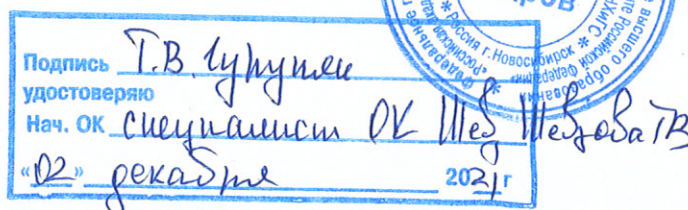 Подпись Т.В.
удостоверяю
Нач. ОК специалист ОК Шев Шевцова ТВ
«02» декабря 2021г
Россия г. Новосибирск
Российской Федерации
высшего образования